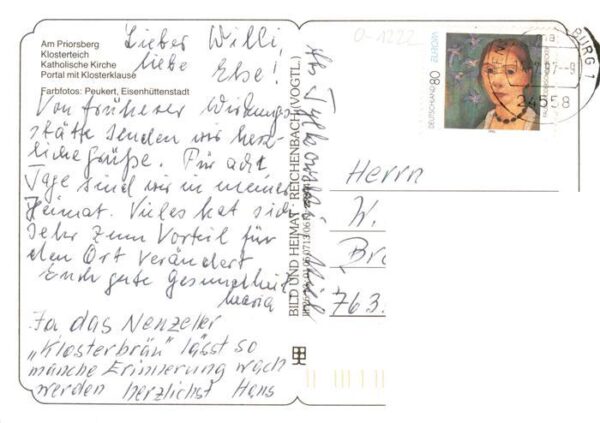 Am Priorsberg
Klosterteich
Katholische Kirche
Portal mit Klosterklause
Farbfotos: Peukert, Eisenhüttenstadt
Lieber Willi,
liebe Else!
Von früherer Wirkungs-
stätte senden wir herz-
liche Grüße. Für acht
Tage sind wir in meiner
Heimat. Vieles hat sich
sehr zum Vorteil für
den Ort verändert
Euch gute Gesundheit
Maria
Ja das Nenzeler
„Klosterbräu" lässt so
manche Erinnerung wach
werden herzlichst Hans
BILD UND HEIMAT · REICHENBACH (VOGTL.)
0-1222
DEUTSCHLAND 80 EUROPA
BURG 1
97-9
34558
Herrn
W.
Bre
763